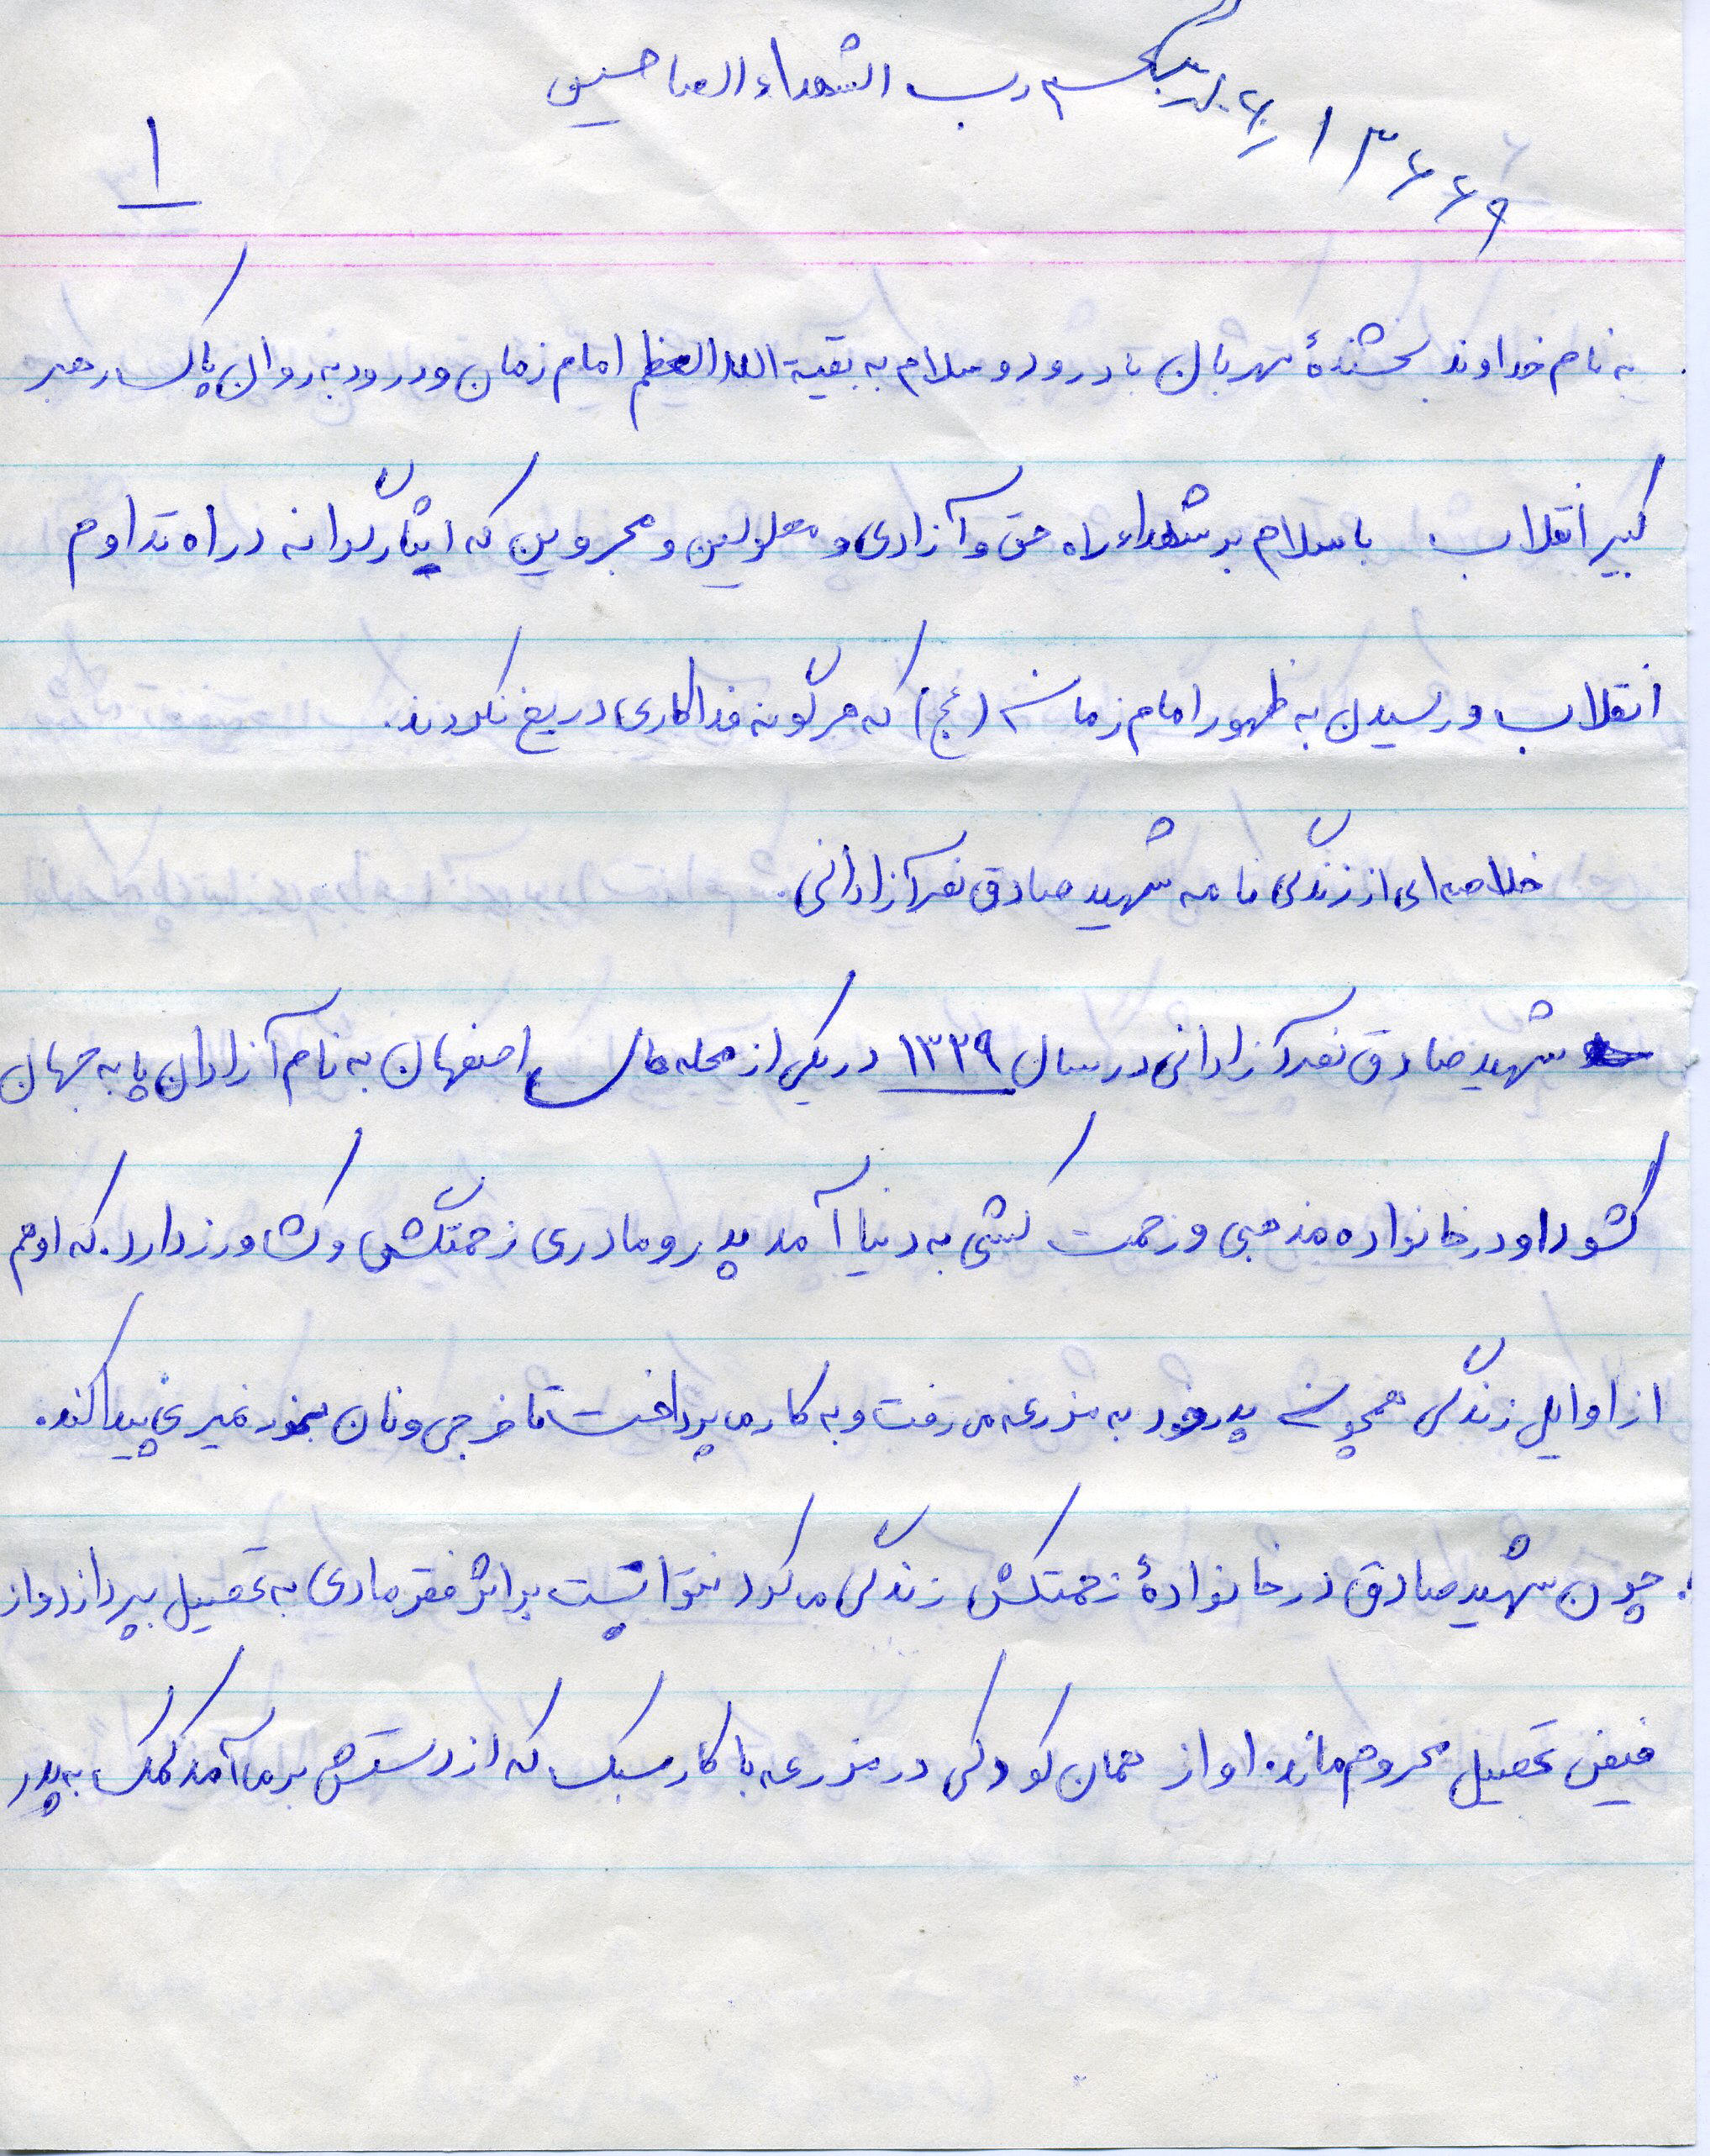 بسم رب الشهداء الصا حسین
۱۳۶۶۹
۱
به نام خداوند بخشندهٔ مهربان با درود و سلام به بقیة الله العظم امام زمان و درود به روان پاک رهبر
کبیر انقلاب با سلام بر شهداء راه حق و آزادی و معلولین و مجروحین که ایثارگرانه در راه تداوم
انقلاب و رسیدن به ظهور امام زمان (عج) که هر گونه فداکاری دریغ نکردند.
خلاصه ای از زندگی نامه شهید صادق نصر آزادانی.
شهید صادق نصر آزادانی در سال ۱۳۳۹ در یکی از محله های اصفهان به نام آزادان پا به جهان
گشود او در خانواده مذهبی و زحمت کشی به دنیا آمد پدر و مادری زحمتکش و کشاورز دارد. که او هم
از اوایل زندگی همچون پدر خود به مزرعه می رفت و به کار می پرداخت تا خرجی و نان بخور نمیری پیدا کند.
چون شهید صادق در خانوادهٔ زحمتکش زندگی می کرد نتوانست بر اثر فقر مادی به تحصیل بپردازد و از
فیض تحصیل محروم ماند. او از همان کودکی در مزرعه با کار سبک که از دستش بر می آمد کمک به پدر